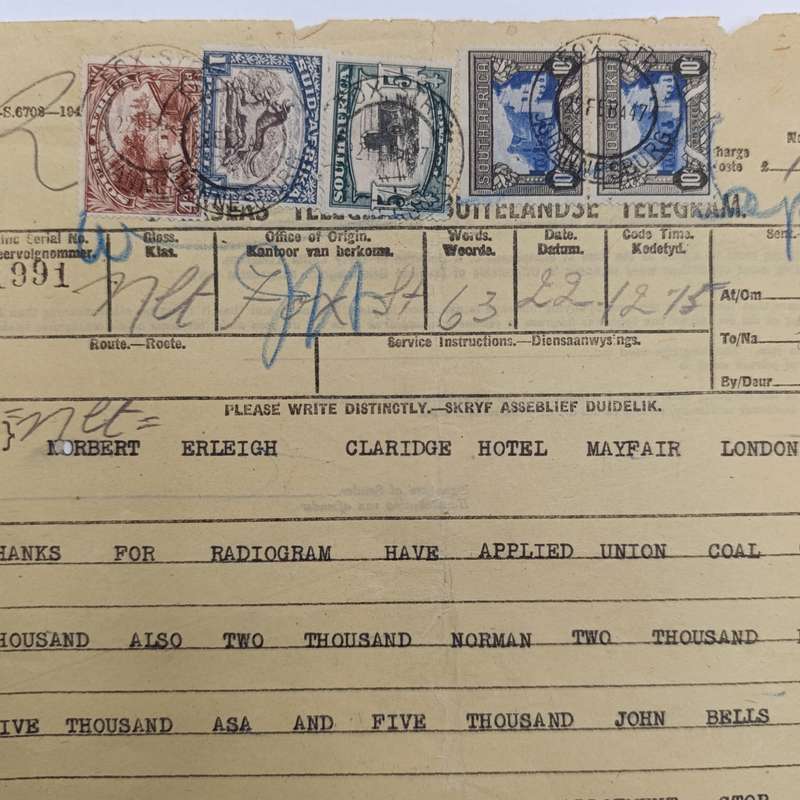 -S.6708-194
SOUTH AFRICA
SUID-AFRIKA
1
SOUTH AFRICA
5
5
SOUTH AFRICA
10
10
FOX ST
22 FEB 47
JOHANNESBURG
OVERSEAS TELEGRAM. BUITELANDSE TELEGRAM.
Serial No. Class. Office of Origin. Words. Date. Code Time.
Klas. Kantoor van herkoms. Woorde. Datum. Kodetyd.
1991 nlt Fox St 63 22 1215
At/Om
Route.—Roete. Service Instructions.—Diensaanwysings. To/Na
By/Deur
PLEASE WRITE DISTINCTLY.—SKRYF ASSEBLIEF DUIDELIK.
=nlt=
NORBERT ERLEIGH CLARIDGE HOTEL MAYFAIR LONDON
HANKS FOR RADIOGRAM HAVE APPLIED UNION COAL
HOUSAND ALSO TWO THOUSAND NORMAN TWO THOUSAND
IVE THOUSAND ASA AND FIVE THOUSAND JOHN BELLS
STOP